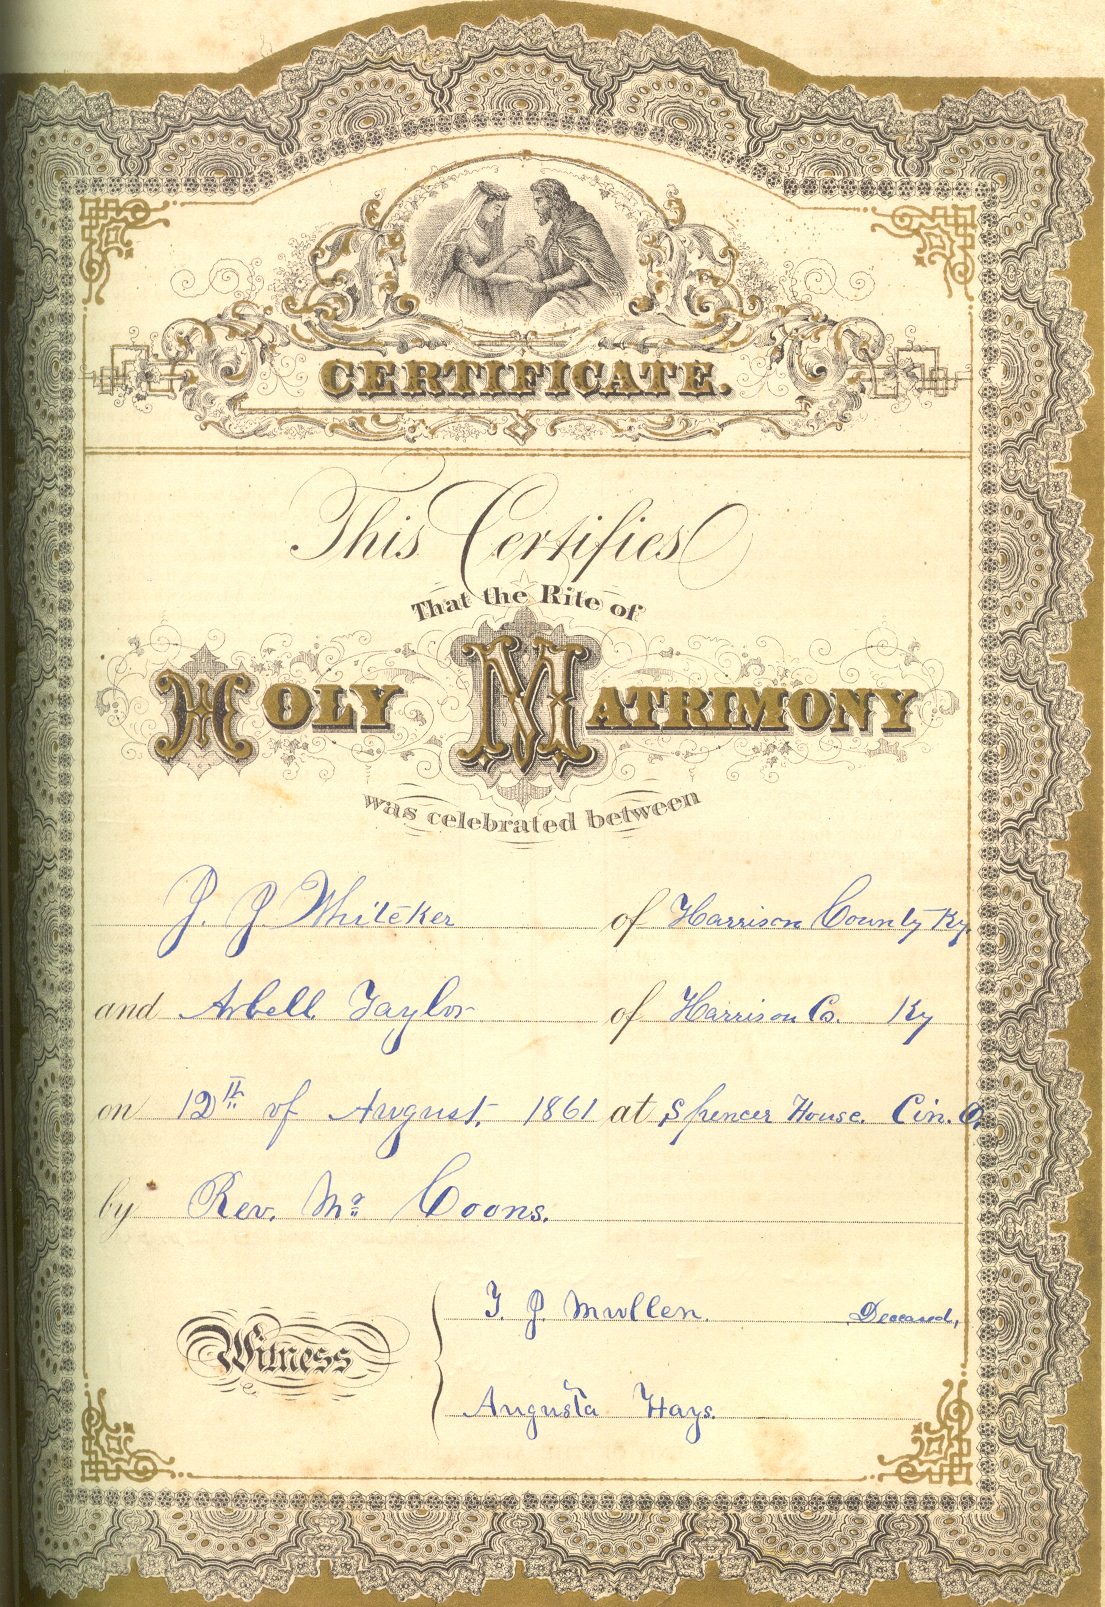 CERTIFICATE.
This Certifies
That the Rite of
HOLY MATRIMONY
was celebrated between
J. J. Whiteker of Harrison County Ky.
and Arbell Taylor of Harrison Co. Ky
on 12th of August, 1861 at Spencer House. Cin. O.
by Rev. Mr Coons.
Witness
T. J. Mullen. Deceased,
Augusta Hays.